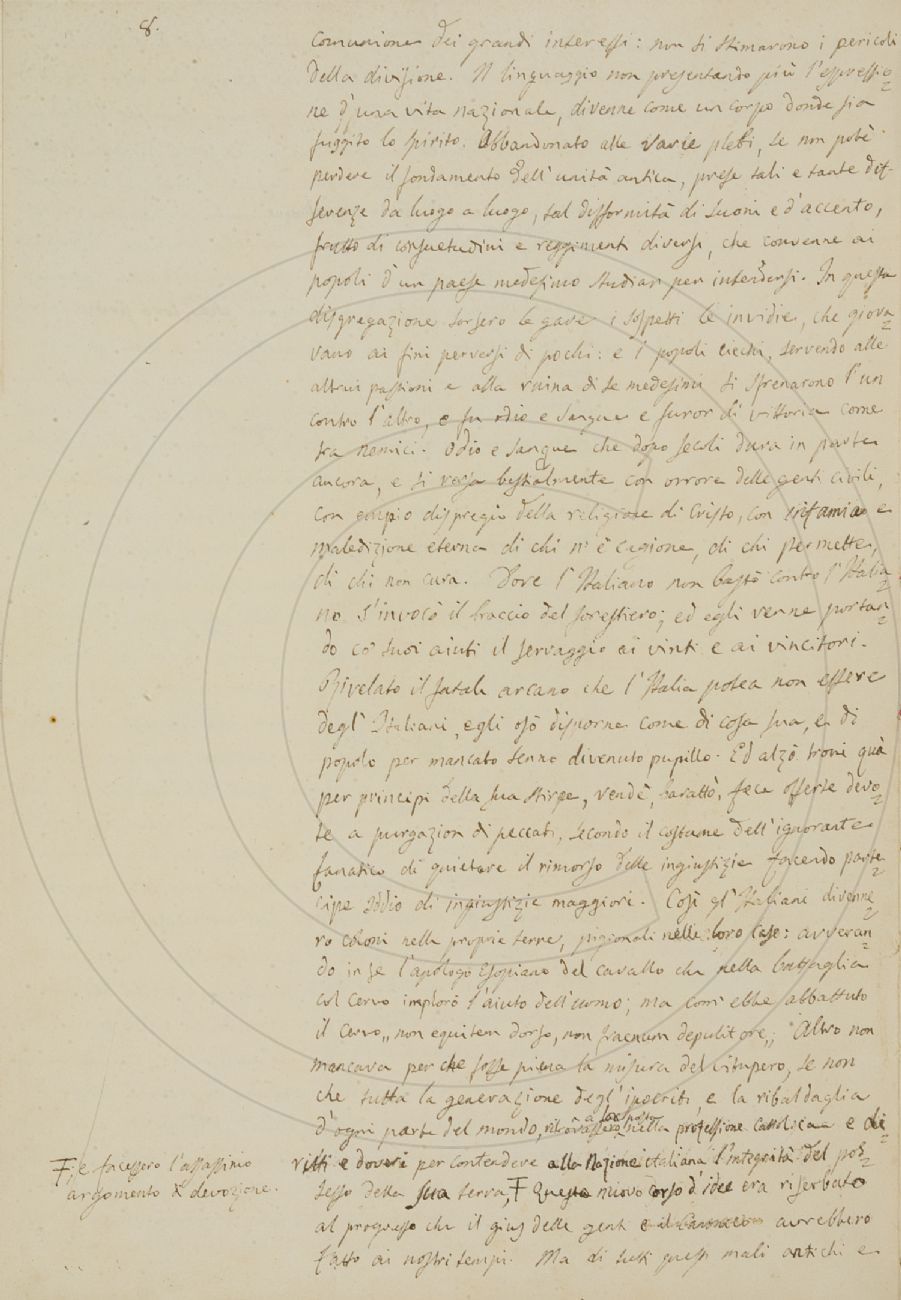 8.
comunione dei grandi interessi: non si stimarono i pericoli
della divisione. Il linguaggio non presentando più l'espressio=
ne d'una vita nazionale, divenne come un corpo donde sia
fuggito lo spirito. Abbandonato alle varie plebi, se non potè
perdere il fondamento dell'unità antica, prese tali e tante dif-
ferenze da luogo a luogo, tal difformità di suoni e d'accento,
frutto di consuetudini e reggimenti diversi, che convenne ai
popoli d'un paese medesimo studiar per intendersi. In questa
disgregazione sorsero le gare i sospetti le invidie, che giova=
vano ai fini perversi di pochi: e i popoli ciechi, servendo alle
altrui passioni e alla ruina di se medesimi si sfrenarono l'un
contro l'altro, e fu odio e sangue e furor di vittoria come
tra nemici. Odio e sangue che dopo secoli dura in parte
ancora, e si versa bestialmente con orrore delle genti civili,
con empio dispregio della religione di Cristo, con infamia e
maledizione eterna di chi n'è cagione, di chi permette,
di chi non cura. Dove l'Italiano non bastò contro l'Italia=
no s'invocò il braccio del forestiero; ed egli venne portan=
do co' suoi aiuti il servaggio ai vinti e ai vincitori.
Rivelato il fatale arcano che l'Italia potea non essere
degl'Italiani, egli osò disporne come di cosa sua, e di
popolo per mancato senno divenuto pupillo. Ed alzò troni quà
per principi della sua stirpe, vendè, barattò, fece offerte devo=
te a purgazion di peccati, secondo il costume dell'ignorante
fanatico di quietare il rimorso delle ingiustizie facendo parte=
cipe Iddio di ingiustizie maggiori. Così gl'Italiani divenne=
ro coloni nelle proprie terre, pigionali nelle loro case: avveran=
do in se l'apologo Esopiano del cavallo che nella battaglia
col Cervo implorò l'aiuto dell'uomo; ma com'ebbe abbattuto
il Cervo „non equitem dorso, non fraenum depulit ore„ Altro non
mancava perche fosse piena la misura del vitupero, se non
che tutta la generazione degl'ipocriti, e la ribaldaglia
d'ogni parte del mondo, ritrovassero nella professione Cattolica e di=
ritti e doveri per contendere alla Nazione italiana l'integrità del pos=
sesso della sua terra, Ŧ Questo nuovo corso d'idee era riserbato
al progresso che il gius delle genti avrebbero
fatto ai nostri tempi. Ma di tutti questi mali antichi e
Ŧ, e facessero l'assassinio
argomento di devozione.